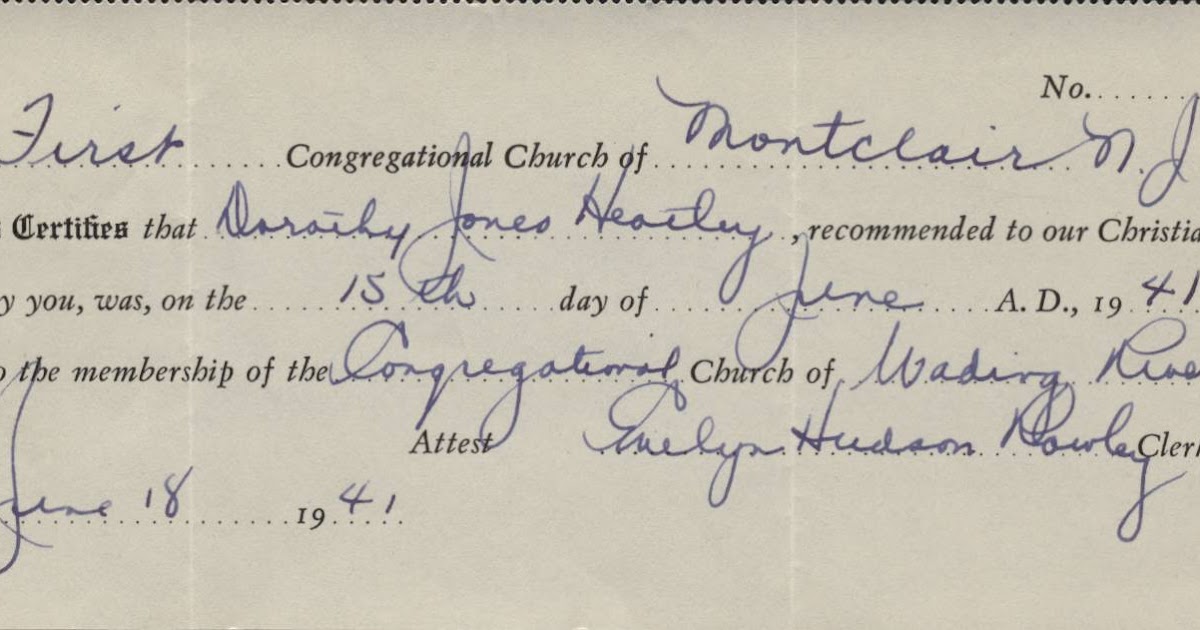 No.
First Congregational Church of Montclair N. J
Certifies that Dorothy Jones Heatley, recommended to our Christia
y you, was, on the 15th day of June A. D., 19 41
o the membership of the Congregational Church of Wading Rive
Attest Evelyn Hudson Rowley Cler
June 18 19 41